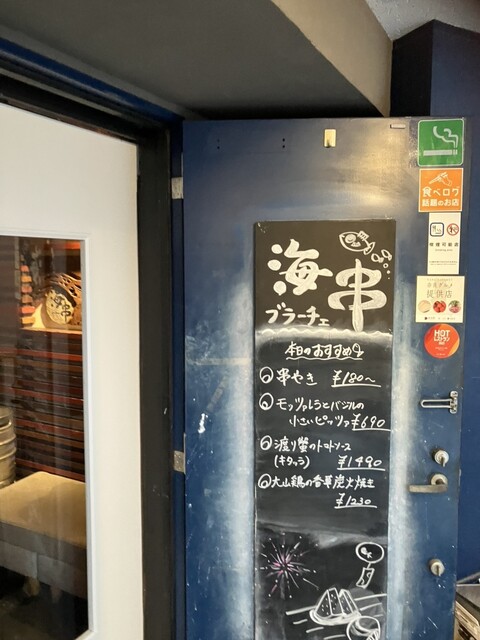 海串
ブラーチェ
本日のおすすめ
串やき ¥180〜
モッツァレラとバジルの
小さいピッツァ ¥690
渡り蟹のトマトソース
(キタッラ) ¥1490
大山鶏の香草炭火焼き
¥1230
食べログ
話題のお店
喫煙可能店
提供店
HOT
海串